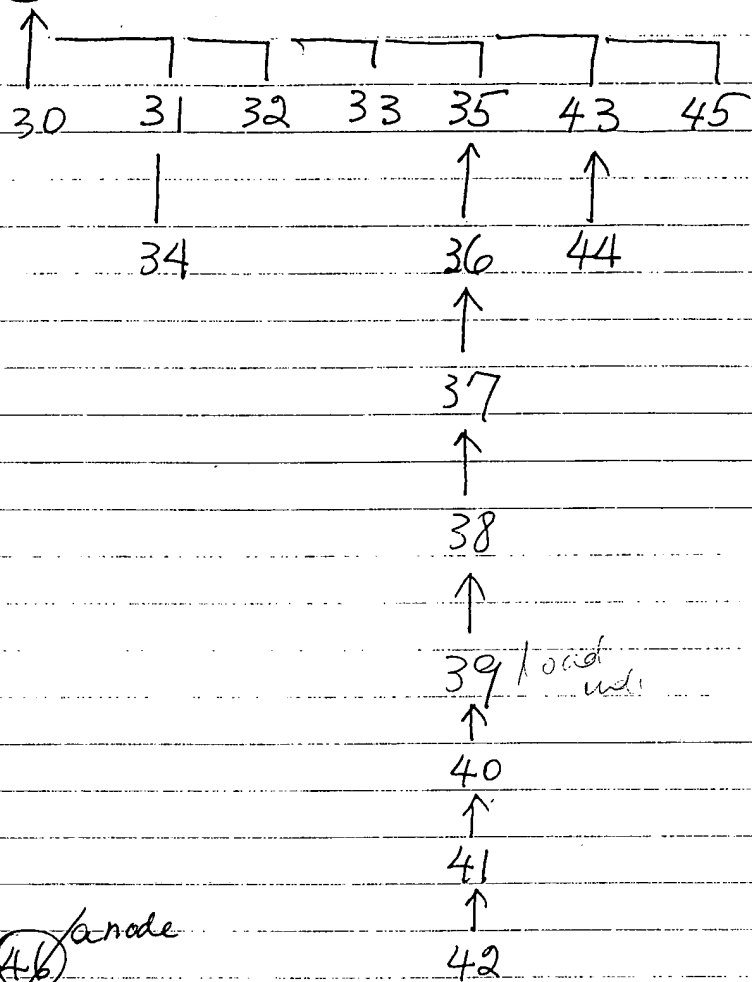 30 31 32 33 35 43 45
34 36 44
37
38
39
40
41
/anode
46 42